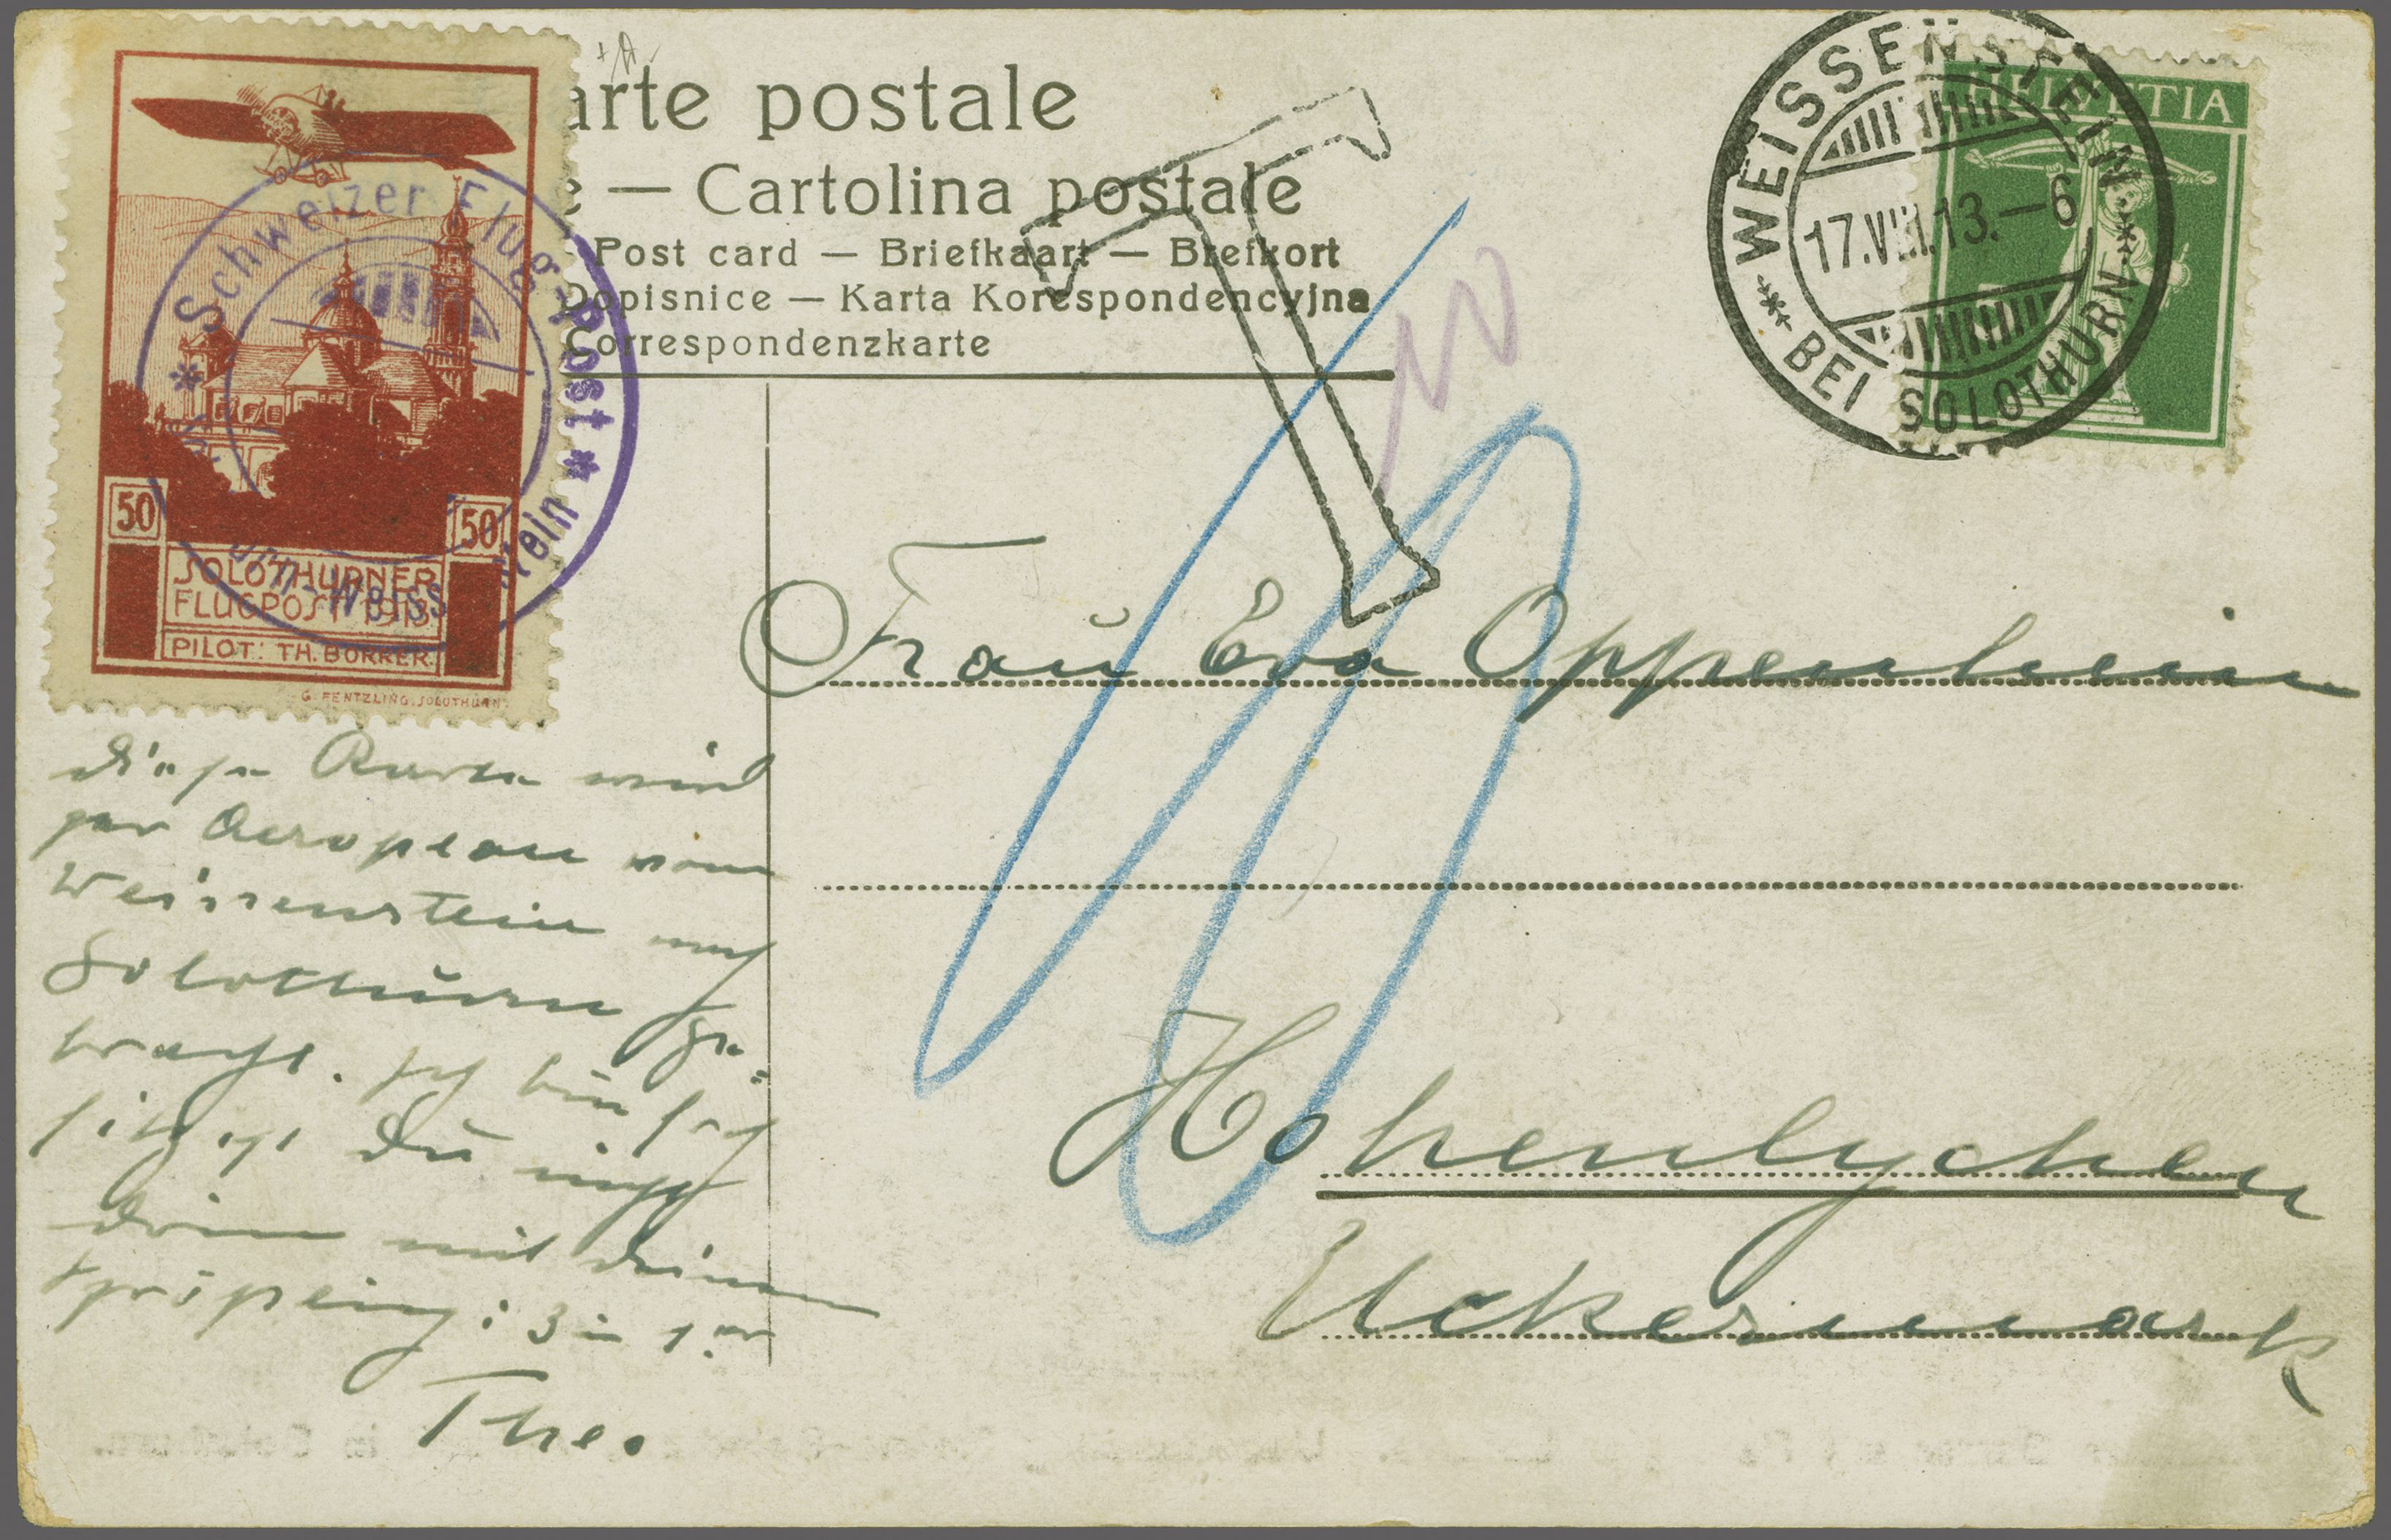 arte postale
e — Cartolina postale
Post card — Briefkaart — Brefkort
Dopisnice — Karta Korespondencyjna
Correspondenzkarte
50 50
SOLOTHURNER
FLUGPOST 1913
PILOT: TH. BORRER.
G. RENTZLING. SOLOTHURN.
* Schweizer Flug-Post *
WEISSENSTEIN
17.VIII.13.–6
BEI SOLOTHURN
HELVETIA
T
Frau Eva Oppenheim
Hohenlychen
Uckermark
diese Karte wird
per Aeroplan vom
Weissenstein nach
Solothurn ge=
bracht. Ich
Du nicht
drin mit deinem
: 3 in 1 er
Theo